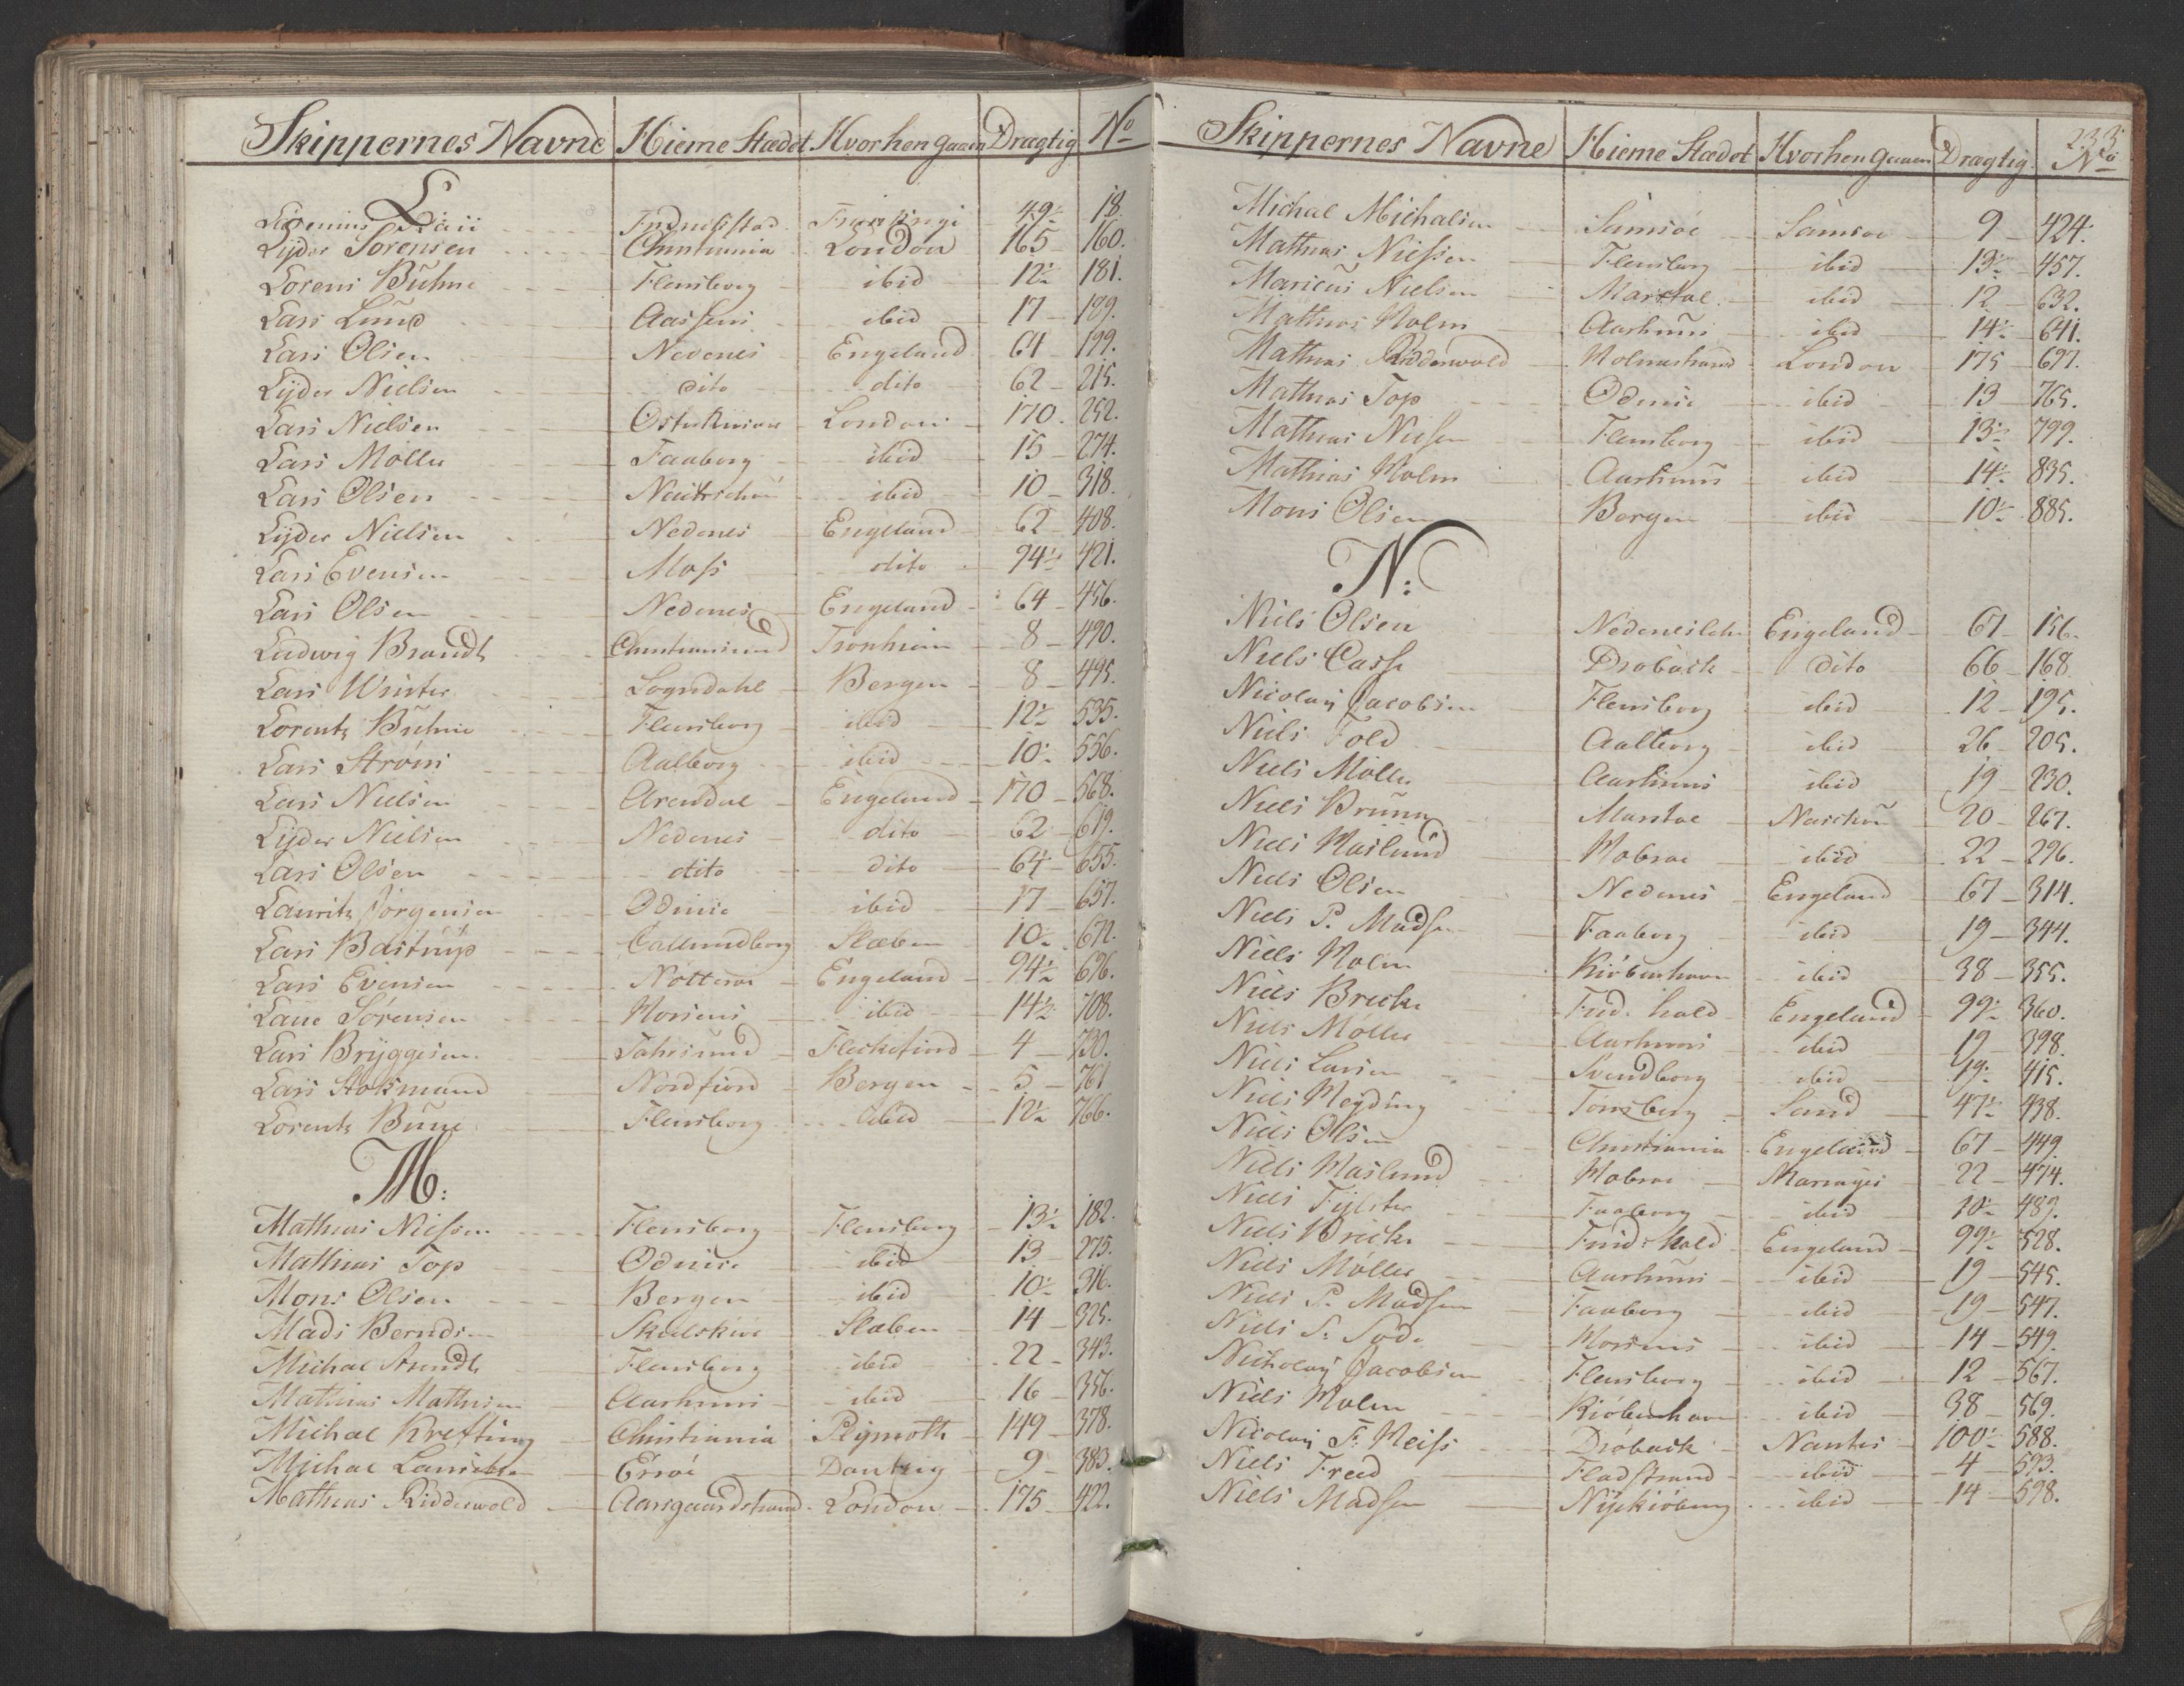 Skippernes Navne Hieme Stædet Hvorhen gaaen Dragtig No
L
Fridrichstad 49½ 18.
Lyder Sörensen Christiania London 165 160.
Lorens Bühne Flensborg ibid 12½ 181.
Lars Lund Aassens ibid 17 189.
Lars Olsen Nedenes Engeland 64 199.
Lyder Nielsen dito dito 62 215.
Lars Nielsen London 170 252.
Lars Möller Faaborg ibid 15 274.
Lars Olsen ibid 10 318.
Lyder Nielsen Nedenes Engeland 62 408.
Lars Evensen Moss dito 94½ 421.
Lars Olsen Nedenes Engeland 64 456.
Ludwig Brandt Christiansund Tronhiem 8 490.
Lars Winter Sogndahl Bergen 8 495.
Lorentz Bühne Flensborg ibid 12½ 535.
Lars Ströms Aalborg ibid 10½ 556.
Lars Nielsen Arendal Engeland 170 568.
Lyder Nielsen Nedenes dito 62 619.
Lars Olsen dito dito 64 655.
Lauritz Jörgensen Odense ibid 17 657.
Lars Bastrup Callundborg Slæben 10½ 672.
Lars Evensen Nötteröe Engeland 94½ 696.
Laue Sörensen Horsens ibid 14½ 708.
Lars Bryggesen Fahrsund Fleckefiord 4 730.
Lars Stokmand Nordfiord Bergen 5 761
Lorentz Büne Flensborg ibid 12½ 766.
M:
Mathias Nissen Flensborg Flensborg 13½ 182.
Mathias Top Odense ibid 13 275.
Mons Olsen Bergen ibid 10½ 316.
Mads Berndsen Skielskiör Slæben 14 325.
Michal Arendt Flensborg ibid 22 343.
Mathias Mathisen Aarhuus ibid 16 356.
Michal Krefting Christiania Plymoth 149 378.
Michal Lauritzen Erröe Dantzig 9 383.
Mathias Ridderwold Aarsgaardstrand London 175 422.
233
Skippernes Navne Hieme Stædet Hvorhen gaaen Dragtig No
Michal Michalsen Samsöe Samsöe 9 424.
Mathias Nissen Flensborg ibid 13½ 457.
Maricus Nielsen Marstal ibid 12 632.
Mathias Holm Aarhuus ibid 14½ 641.
Mathias Ridderwold Holmestrand London 175 697.
Mathias Top Odense ibid 13 765.
Mathias Nissen Flensborg ibid 13½ 799.
Mathias Holm Aarhuus ibid 14½ 835.
Mons Olsen Bergen ibid 10½ 885.
N:
Niels Olsen Engeland 67 156.
Niels Casse Dröback dito 66 168
Nicolay Jacobsen Flensborg ibid 12 195.
Niels Told Aalborg ibid 26 205.
Niels Möller Aarhuus ibid 19 230.
Niels Bruun Marstal Naschou 20 267.
Niels Haslund Hobroe ibid 22 296.
Niels Olsen Nedenes Engeland 67 314.
Niels P. Madsen Faaborg ibid 19 344.
Niels Holm Kiöbenhavn ibid 38 355.
Niels Brick Frid. hald Engeland 99½ 360.
Niels Möller Aarhuus ibid 19 398.
Niels Larsen Svendborg ibid 19½ 415.
Niels Heyding Tonsberg Sand 47½ 438.
Niels Olsen Christiania Engeland 67 449.
Niels Haslund Hobroe Mariager 22 474.
Niels Fylster Faaborg ibid 10½ 489.
Niels Brick Frid. Hald Engeland 99½ 528.
Niels Möller Aarhuus ibid 19 545.
Niels P. Madsen Faaborg ibid 19 547.
Niels S. Horsens ibid 14 549.
Nicholay Jacobsen Flensborg ibid 12 567.
Niels Holm Kiöbenhavn ibid 38 569.
Nicolay F. Heiss Dröback Nantes 100½ 588.
Niels Freed Fladstrand ibid 4 593.
Niels Madsen Nyekiöbing ibid 14 598.